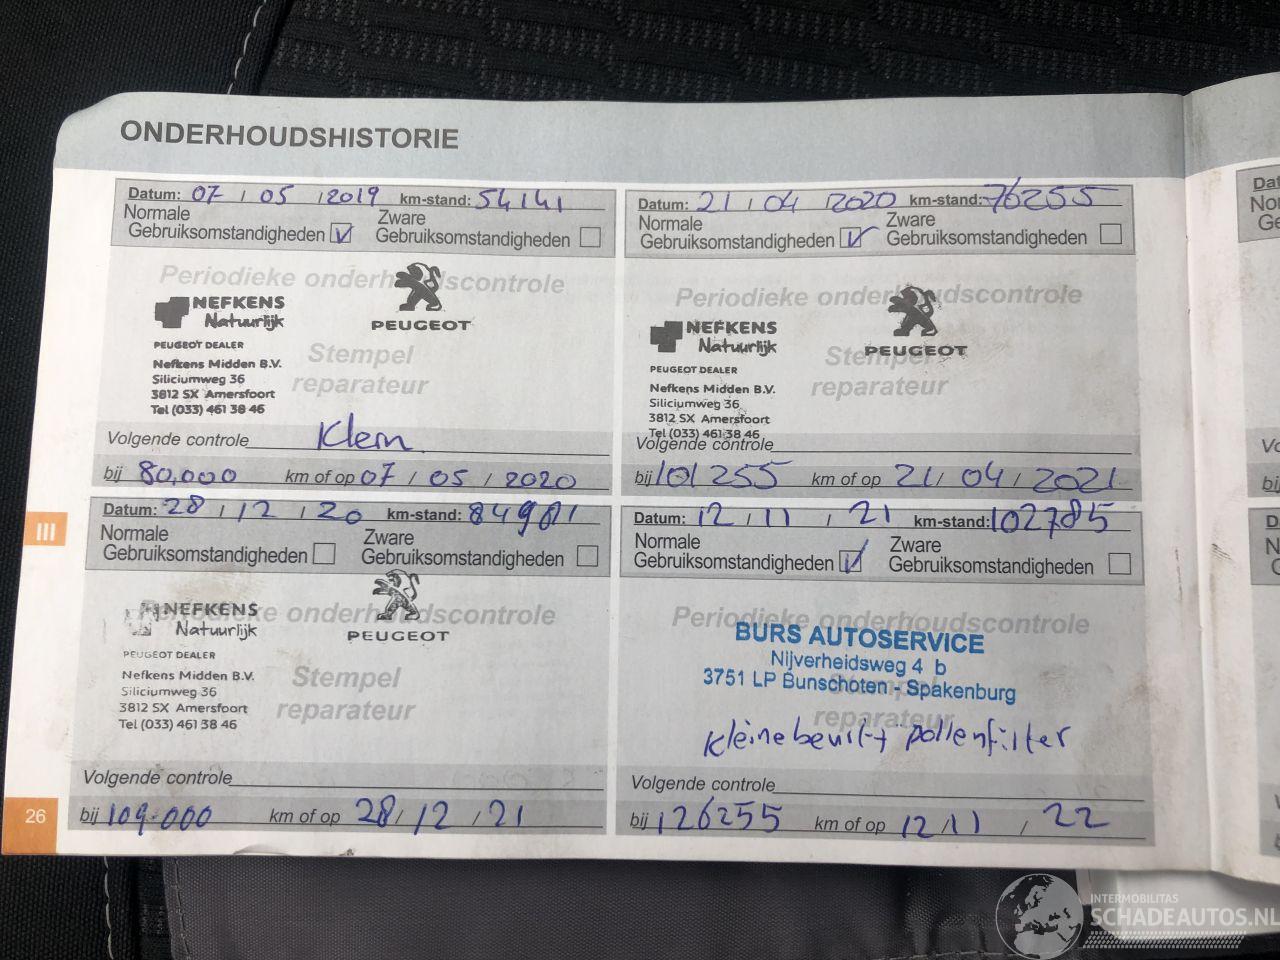 ONDERHOUDSHISTORIE
Datum: 07 / 05 / 2019 km-stand: 54141
Normale Gebruiksomstandigheden V Zware Gebruiksomstandigheden
Periodieke onderhoudscontrole
NEFKENS
Natuurlijk
PEUGEOT
PEUGEOT DEALER
Stempel
reparateur
Nefkens Midden B.V.
Siliciumweg 36
3812 SX Amersfoort
Tel (033) 461 38 46
Volgende controle Klein
bij 80,000 km of op 07 / 05 / 2020
Datum: 21 / 04 / 2020 km-stand: 76255
Normale Gebruiksomstandigheden V Zware Gebruiksomstandigheden
Periodieke onderhoudscontrole
NEFKENS
Natuurlijk
PEUGEOT
PEUGEOT DEALER
Stempel
reparateur
Nefkens Midden B.V.
Siliciumweg 36
3812 SX Amersfoort
Tel (033) 461 38 46
Volgende controle
bij 101255 km of op 21 / 04 / 2021
III
Datum: 28 / 12 / 20 km-stand:
Normale Gebruiksomstandigheden Zware Gebruiksomstandigheden
Periodieke onderhoudscontrole
NEFKENS
Natuurlijk
PEUGEOT
PEUGEOT DEALER
Stempel
reparateur
Nefkens Midden B.V.
Siliciumweg 36
3812 SX Amersfoort
Tel (033) 461 38 46
Volgende controle
bij 109.000 km of op 28 / 12 / 21
Datum: 12 / 11 / 21 km-stand: 102785
Normale Gebruiksomstandigheden V Zware Gebruiksomstandigheden
Periodieke onderhoudscontrole
BURS AUTOSERVICE
Nijverheidsweg 4 b
3751 LP Bunschoten - Spakenburg
Stempel
reparateur
kleine beurt + pollenfilter
Volgende controle
bij 126255 km of op 12 / 11 / 22
26
INTERMOBILITAS
SCHADEAUTOS.NL